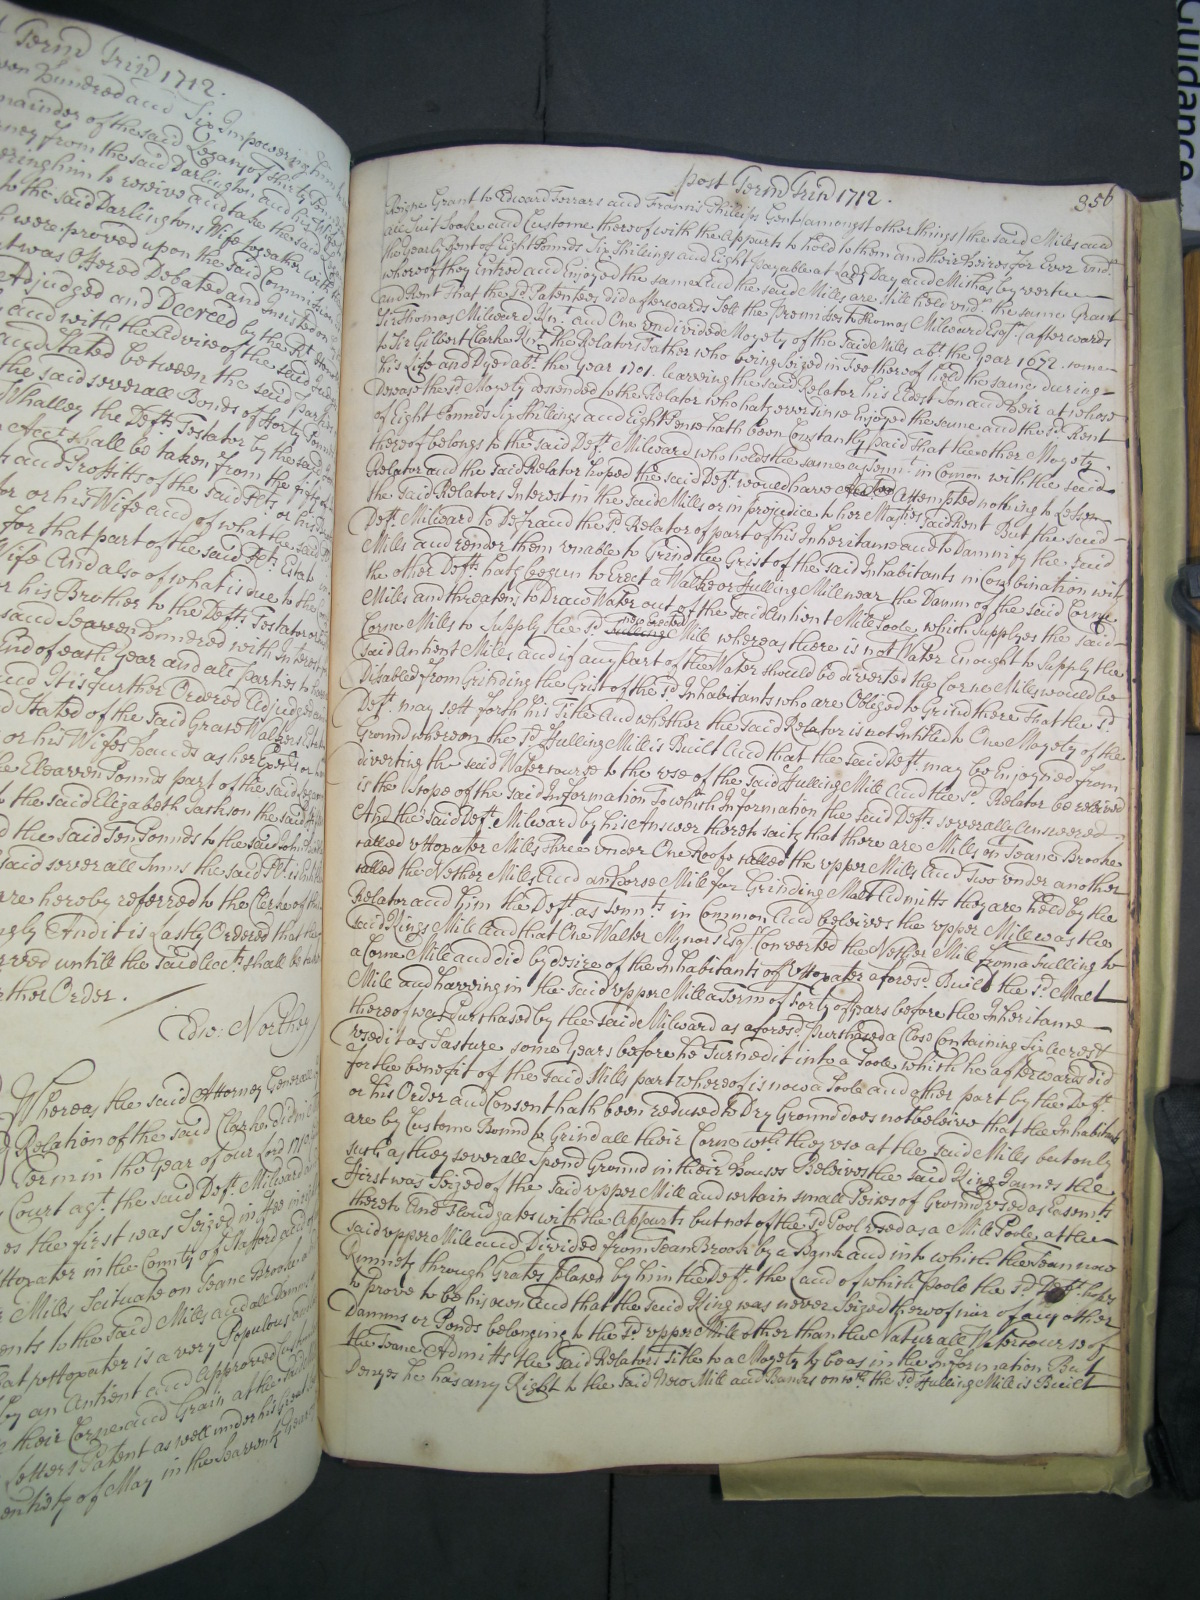 Term Trin 1712.
ven Hundred and Six Impowering him
mainder of the said Legacy of Thirty Pounds
rney from the said Darlington and his Wife
ering him to receive and take the said
to the said Darlingtons Wife together with
h were proved upon the said Commission
t was Offered Debated and Insisted on
Adjudged and Decreed by the Rt.
and with the Advice of the said
and Stated between the said Parties
the said severall Bonds of Forty Pounds
Whalley the Defts. Testator by the said
Acct. shall be taken from the
s and Proffitts of the said Plts. or his
or or his Wife and of what the said
for that part of the said Plts. Estate
Wife And also of what is due to the
r his Brother to the Defts Testator
sand Seaven Hundred with Interest
End of each Year and all Parties to
And It is further Ordered Adjudged
d Stated of the said Grace Walkers Estate
or his Wifes hands as her Exectr.
he Eleaven Pounds part of the said Legacy
to the said Elizabeth Jackson the said
d the said Ten Pounds to the said John
said severall Sums the said Plt. is
are hereby referred to the Clerke of the
ngly And it is Lastly Ordered that
rved untill the said Acct. shall be
rther Order.
Edw: Northey
Whereas the said Attorney Generall
Relation of the said Clarke did in
Term in the Year of our Lord
Court agt. the said Deft. Milward
es the first was Seized in Fee
Uttoxater in the County of Stafford and
Mills Scituate on Teane Brooke
ents to the said Mills and all Damms
at Uttoxater is a very Populous
by an Antient and Approved Custome
their Corne and Grain at the said
Letters Patent as well under his Great
entieth of May in the Seaventh Year
post Term Trin 1712.
356
Reigne Grant to Edward Ferrars and Francis Phillips Gent (amongst other things) the said Mills and
all Suit Soake and Custome thereof with the Appurts to hold to them and their heires for Ever undr.
the Yearly Rent of Eight Pounds Six Shillings and Eight payable at Lady Day and Michas by vertue
whereof they entred and Enjoyed the same And the said Mills are still held undr. the same Grant
and Rent that the sd. Patentees did afterwards Sell the Premisses to Thomas Milward Esqr. (afterwards
Sir Thomas Milward Knt.) and One undivided Moyety of the said Mills abt. the Year 1672. come
to Sir Gilbert Clarke Knt. The Relators Father who being Seized in Fee thereof held the same during
his life and Dyed abt. the Year 1701. leaveing the said Relator his Eldest Son and Heir at whose
Decease the sd. Moyety descended to the Relator who hath ever since Enjoyed the same and the sd. Rent
of Eight Pounds Six Shillings and Eight Pence hath been Constantly paid That the other Moyety
thereof belongs to the said Deft. Milward who holds the same as Tennt. in Comon with the said
Relator and the said Relator hoped the said Deft. would have Attempted nothing to Lessen
the said Relators Interest in the said Mills or in prejudice to her Maties said Rent But the said
Deft. Milward to Defraud the sd. Relator of part of his Inheritance and to Damnify the said
Mills and render them unable to Grind the Grist of the said Inhabitants in Combination with
the other Defts hath begun to Erect a Walke or Fulling Mill near the Damm of the said Corne
Mills and threatens to Draw Water out of the said Antient Mill Poole which Supplyes the said
Corne Mills to Supply the sd. new Erected Fulling Mill whereas there is not Water Enought to Supply the
said Antient Mills and if any part of the Water should be diverted the Corne Mills would be
Disabled from Grinding the Grist of the sd Inhabitants who are Obliged to Grind there That the sd.
Deft. may sett forth his Title And whether the said Relator is not Intitled to One Moyety of the
Ground whereon the sd Fulling Mill is Built And that the said Deft. may be Injoyned from
diverting the said Watercourse to the use of the said Fulling Mill And the sd. Relator be relieved
is the Scope of the said Information To which Information the said Defts. severally Answered
And the said Deft. Milward by his Answer thereto saith that there are Mills on Teane Brooke
called Uttoxater Mills three under One Roofe called the upper Mills And Two under another
called the Nether Mills And an horse Mill for Grinding Malt Admitts they are held by the
Relator and him the Deft. as Tennts. in Common And beleives the upper Mill was the
said Kings Mill And that One Walter Mynors Esqr. Converted the Nether Mill from a fulling to
a Corne Mill and did by desire of the Inhabitants of Uttoxater aforesd. Build the sd. Malt
Mill and haveing in the said upper Mill a Term of Forty Years before the Inheritance
thereof was Purchased by the said Milward as aforesd. Purchased a Close Containing Six Acres &
used it as Pasture some Years before he Turned it into a Poole which he afterwards did
for the benefit of the said Mills part whereof is now a Poole and other part by the Deft.
or his Order and Consent hath been reduced to Dry Ground does not beleive that the Inhabitants
are by Custome Bound to Grind all their Corne wch. they use at the said Mills but only
such as they severally Spend Ground in their Houses Beleives the said King James the
First was Seized of the said upper Mill and certain small Peices of Ground used as Easemts.
thereto And Floudgates with the Appurts but not of the sd Pool used as a Mill Poole, at the
said upper Mill and Divided from Tean Brook by a Bank and into which the Tean now
Runneth through Grates placed by him the Deft. the Land of which Poole the sd. Deft. hopes
to prove to be his own And that the said King was never Seized thereof nor of any other
Damms or Ponds belonging to the sd upper Mill other than the Naturall Watercourse of
the Teane Admitts the said Relators Title to a Moyety to be as in the Information But
Denyes he has any Right to the said New Mill and Banks on wch. the sd. Fulling Mill is Built
Guidance